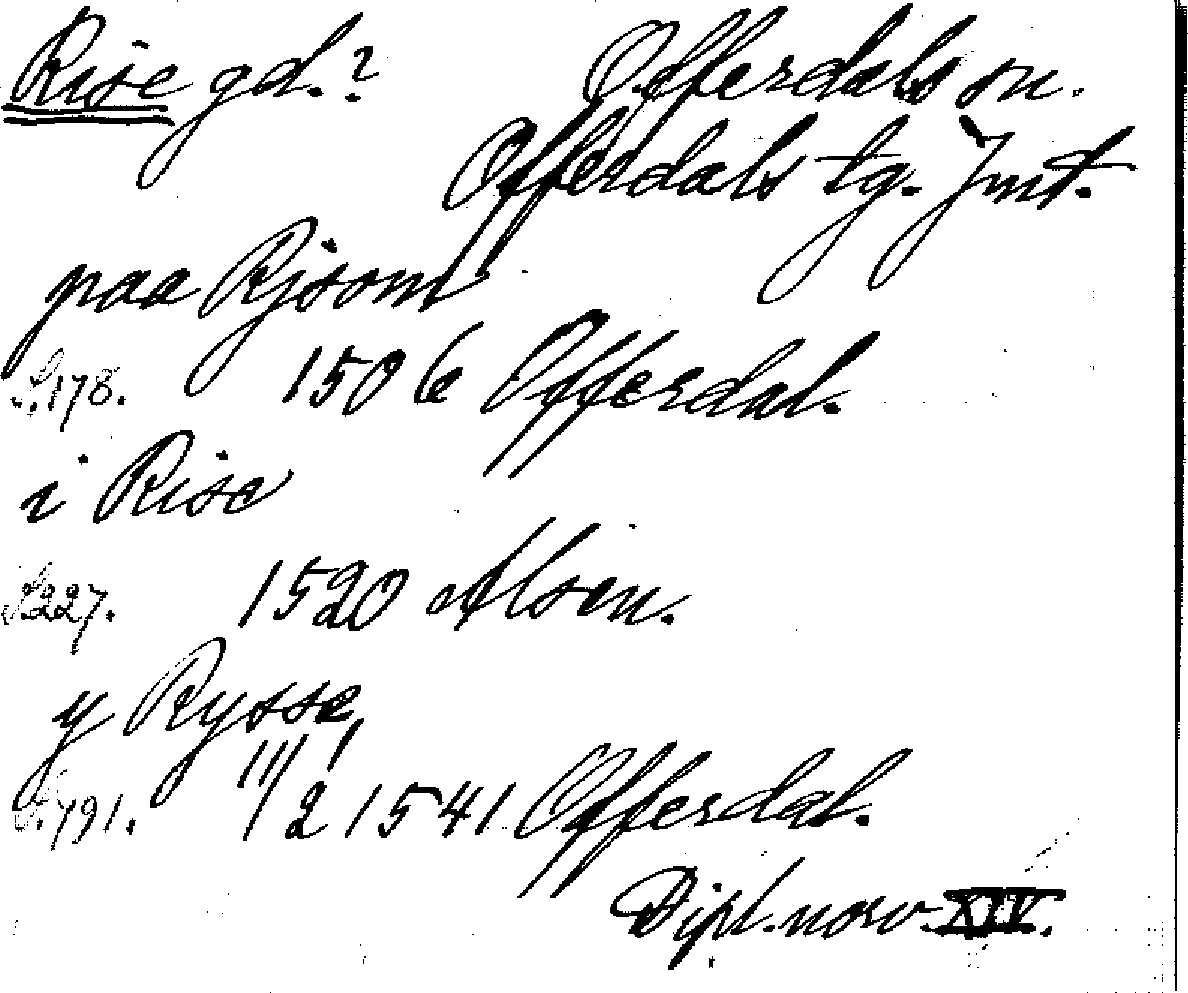 Rise gd.? Offerdals sn.
Offerdals tg. Jmt.
paa Rjsom
S.178. 1506 Offerdal.
i Rise
S.227. 1520 Alsen.
y Rysse,
S.791. 11/2 1541 Offerdal.
Dipl. norv. XIV.